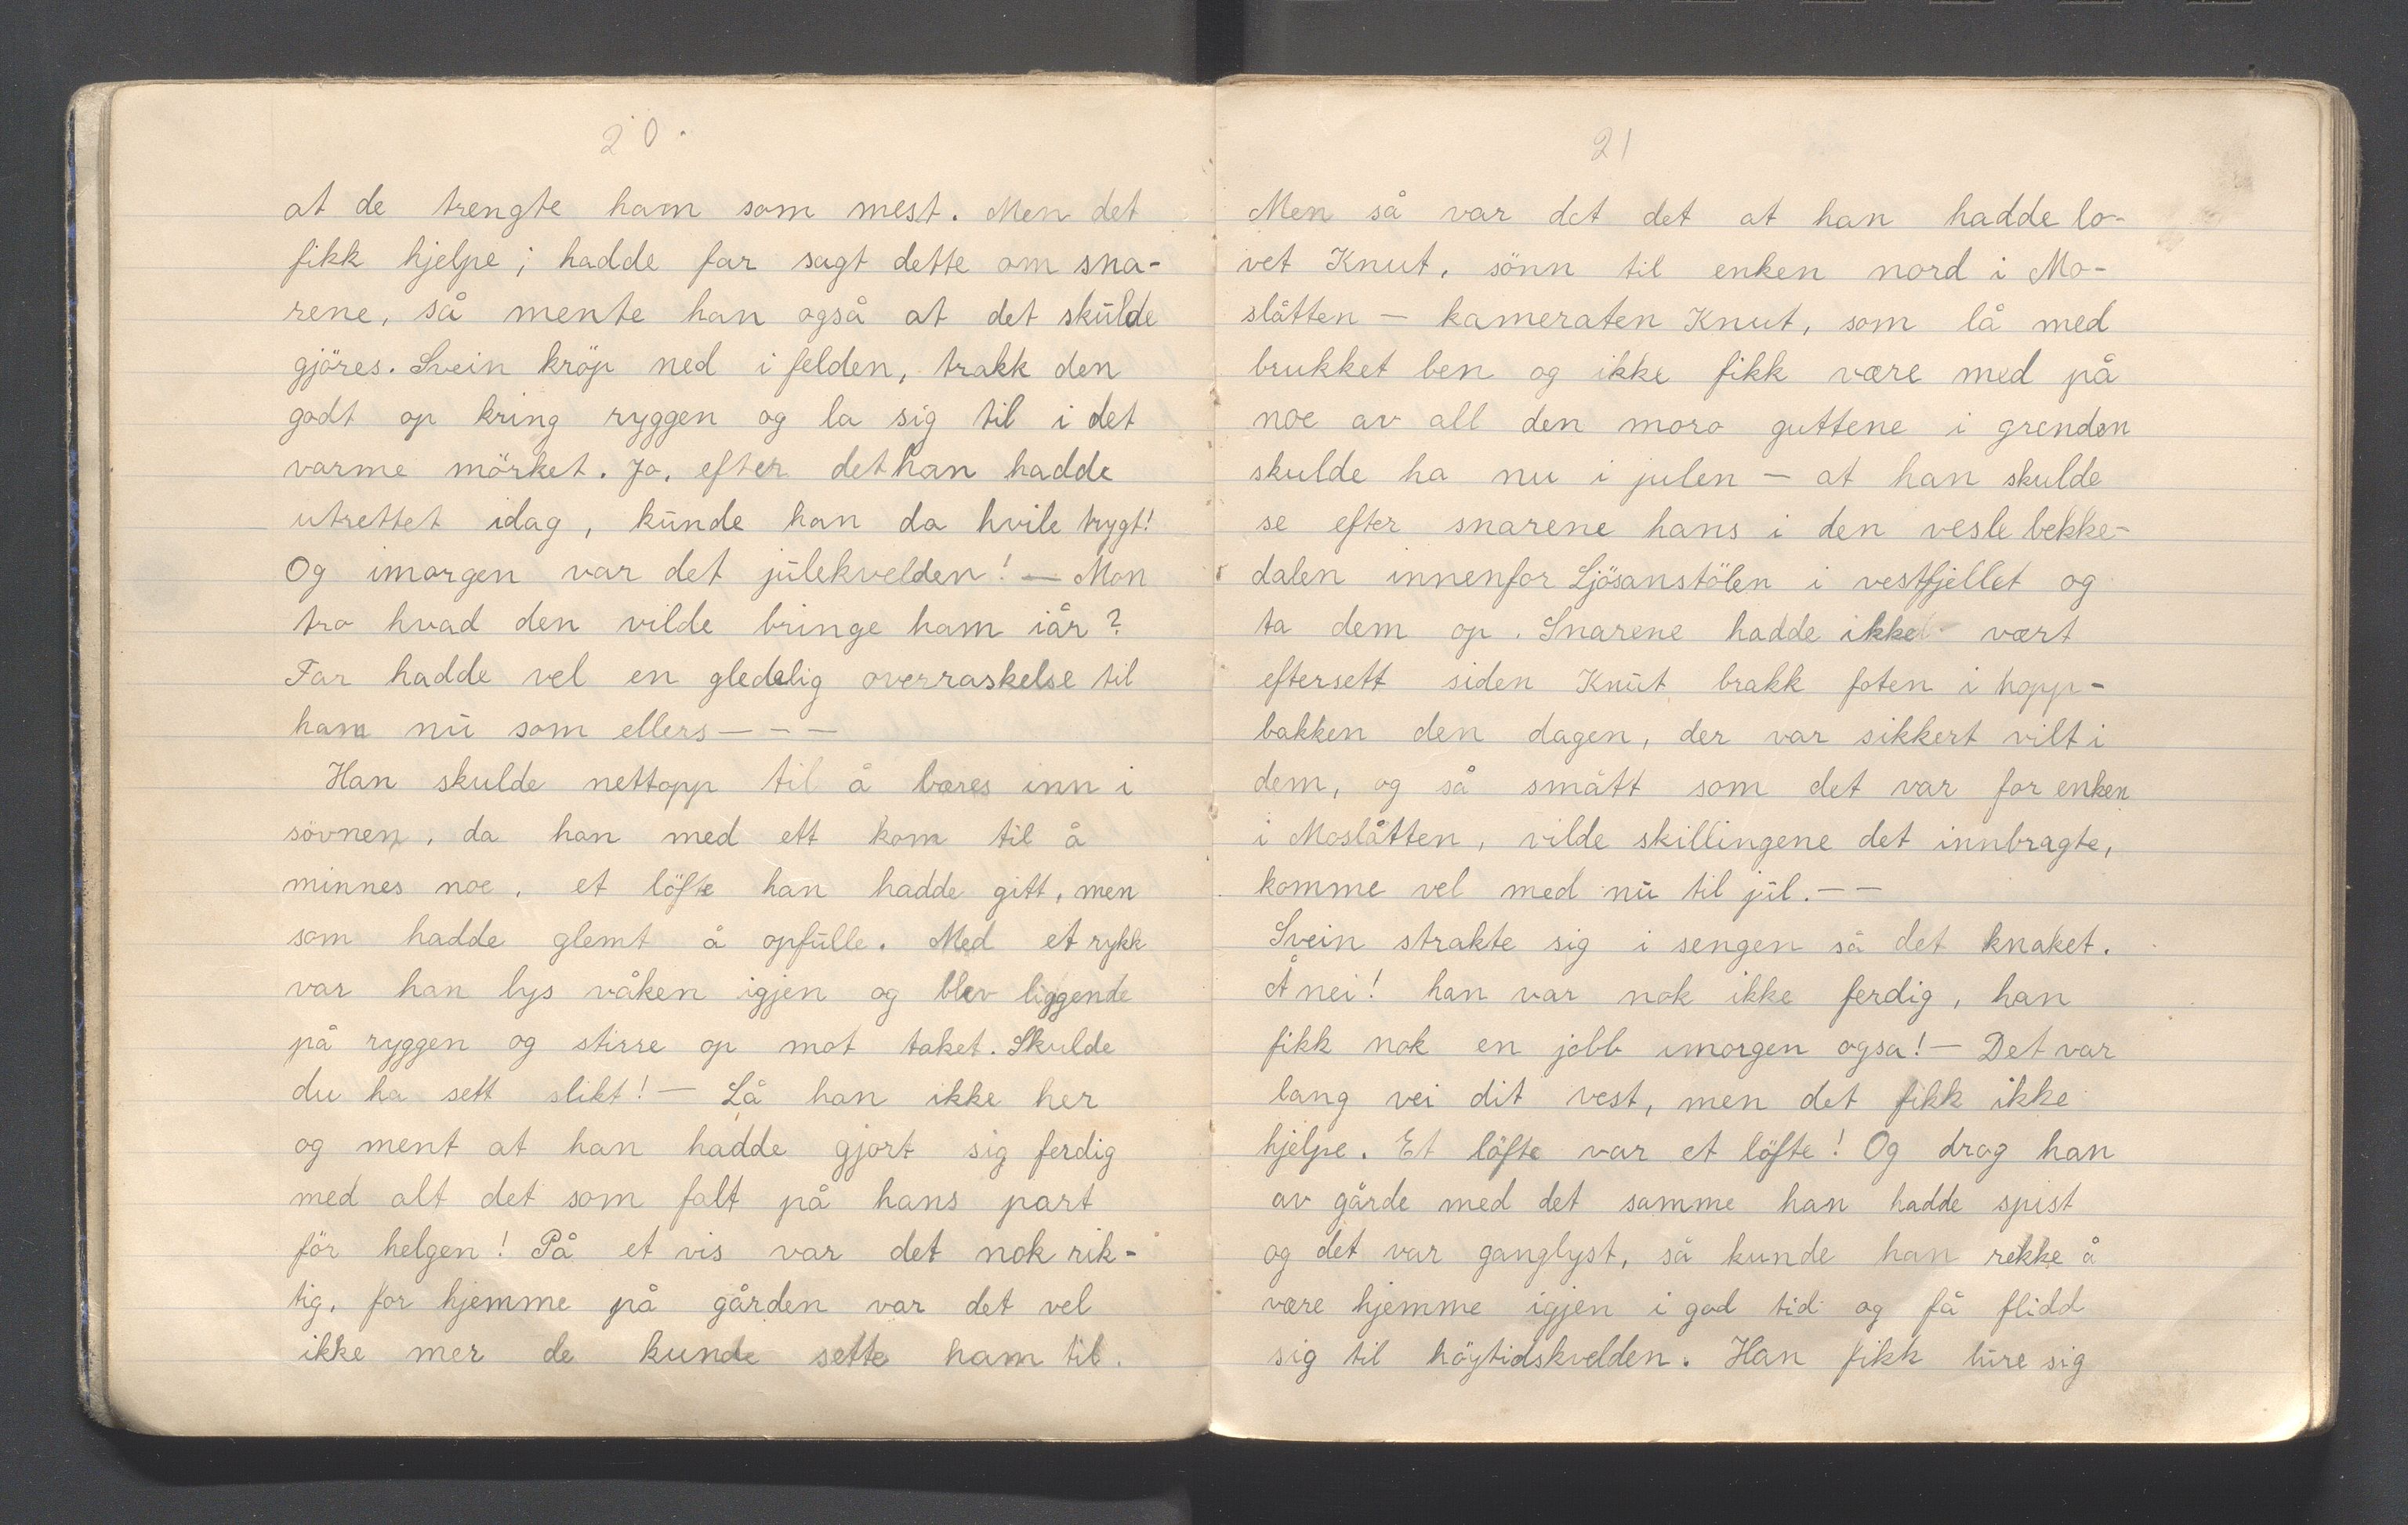 20.
at de trengte ham som mest. Men det
fikk hjelpe; hadde far sagt dette om sna-
rene, så mente han også at det skūlde
gjöres. Svein kröp ned i felden, trakk den
godt op kring ryggen og la sig til i det
varme mörket. Jo, efter det han hadde
utrettet idag, kūnde han da hvile trygt!
Og imorgen var det jūlekvelden! — Mon
tro hvad den vilde bringe ham iår?
Far hadde vel en gledelig overraskelse til
ham nū som ellers — — —
Han skulde nettopp til å bæres inn i
sövnen, da han med ett kom til å
minnes noe, et löfte han hadde gitt, men
som hadde glemt å opfūlle. Med et rykk
var han lys våken igjen og blev liggende
på ryggen og stirre op mot taket. Skulde
du ha sett slikt! — Lå han ikke her
og ment at han hadde gjort sig ferdig
med alt det som falt på hans part
för helgen! På et vis var det nok rik-
tig, for hjemme på gården var det vel
ikke mer de kunde sette ham til.
21
Men så var det det at han hadde lo-
vet Knut, sönn til enken nord i Mo-
slåtten — kameraten Knut, som lå med
brukket ben og ikke fikk være med på
noe av all den moro guttene i grenden
skulde ha nu i julen — at han skulde
se efter snarene hans i den vesle bekke-
dalen innenfor Ljösanstölen i vestfjellet og
ta dem op. Snarene hadde ikke vært
eftersett siden Knūt brakk foten i hopp-
bakken den dagen, der var sikkert vilt i
dem, og så smått som det var for enken
i Moslåtten, vilde skillingene det innbragte,
komme vel med nū til jūl. — —
Svein strakte sig i sengen så det knaket.
Å nei! han var nok ikke ferdig, han
fikk nok en jobb imorgen ogsa! — Det var
lang vei dit vest, men det fikk ikke
hjelpe. Et löfte var et löfte! Og drog han
av gårde med det samme han hadde spist
og det var ganglyst, så kunde han rekke å
være hjemme igjen i god tid og få flidd
sig til höytidskvelden. Han fikk lūre sig